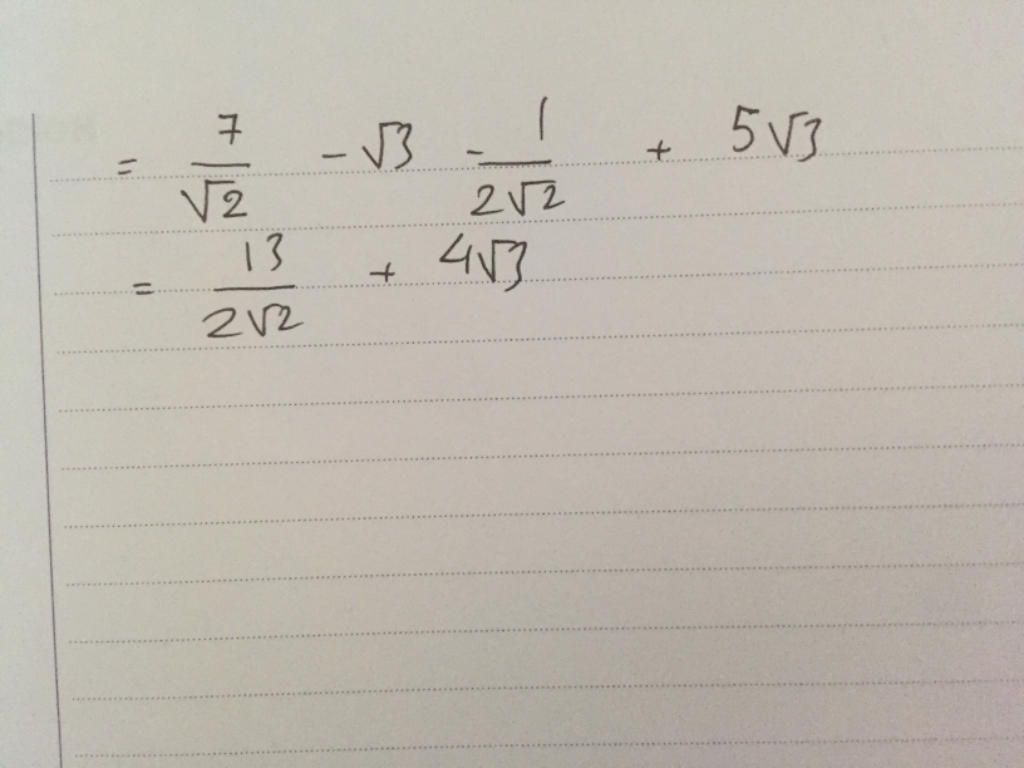 = 7/√2 - √3 - 1/2√2 + 5√3
= 13/2√2 + 4√3